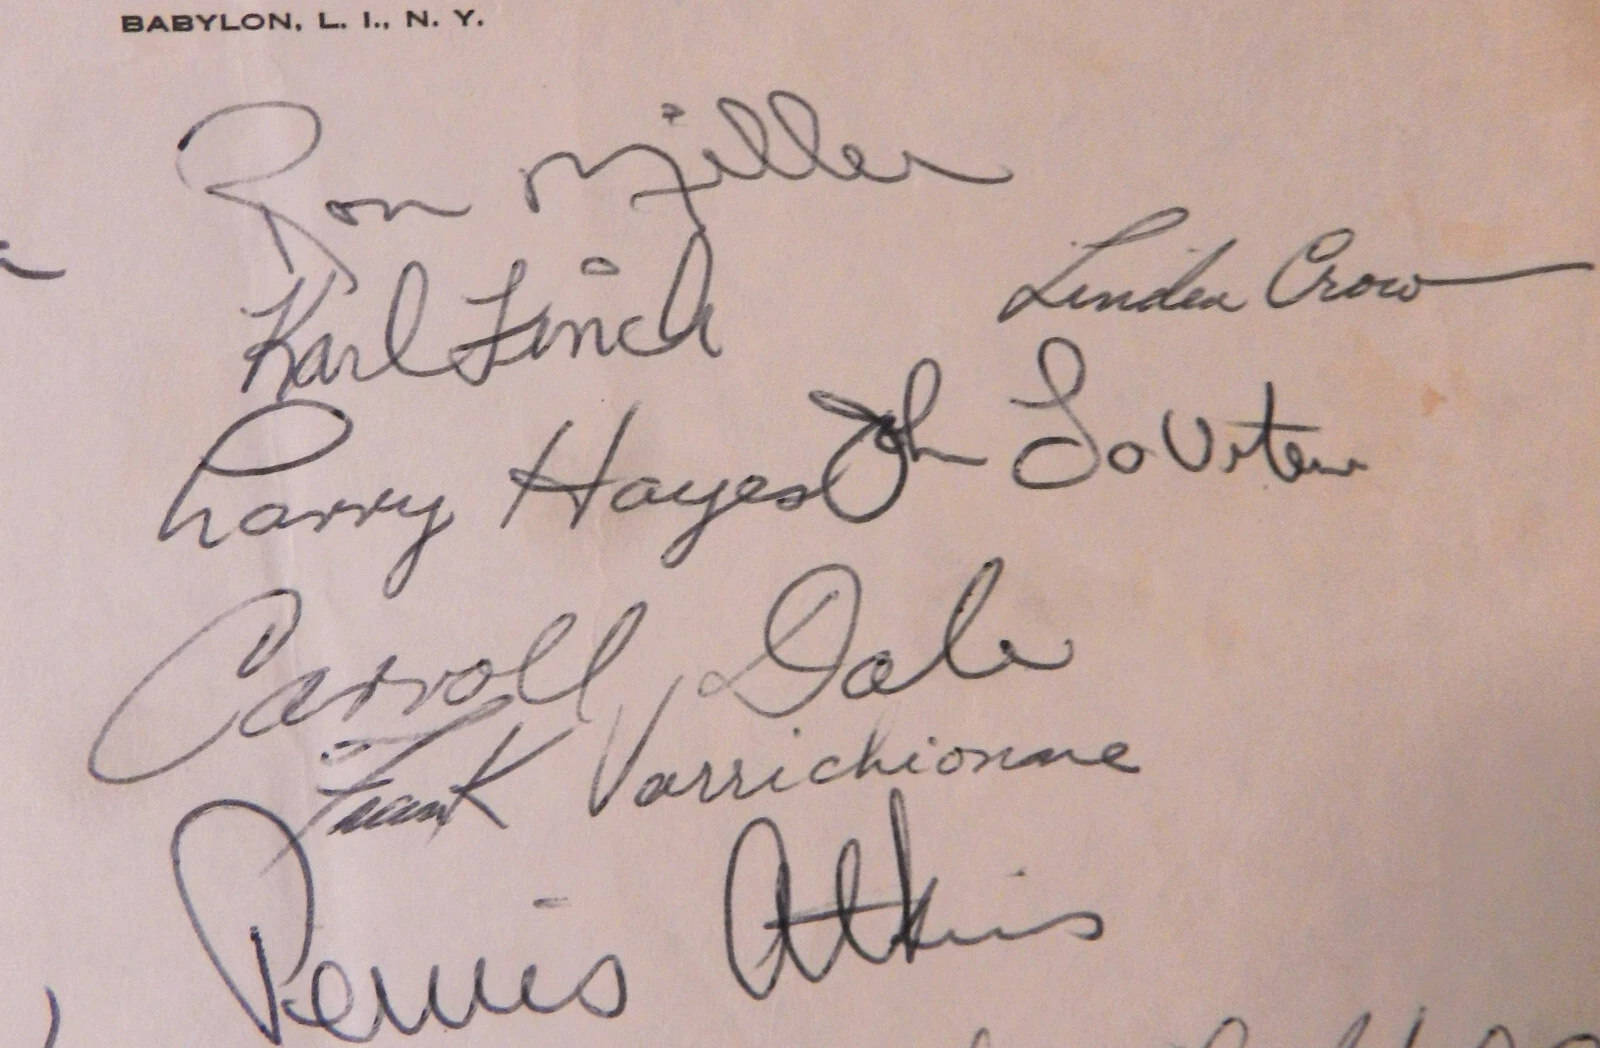 BABYLON, L. I., N. Y.
Ron Miller
Karl Finch
Linden Crow
Larry Hayes
John LoVetere
Carroll Dale
Frank Varrichionne
Pervis Atkins